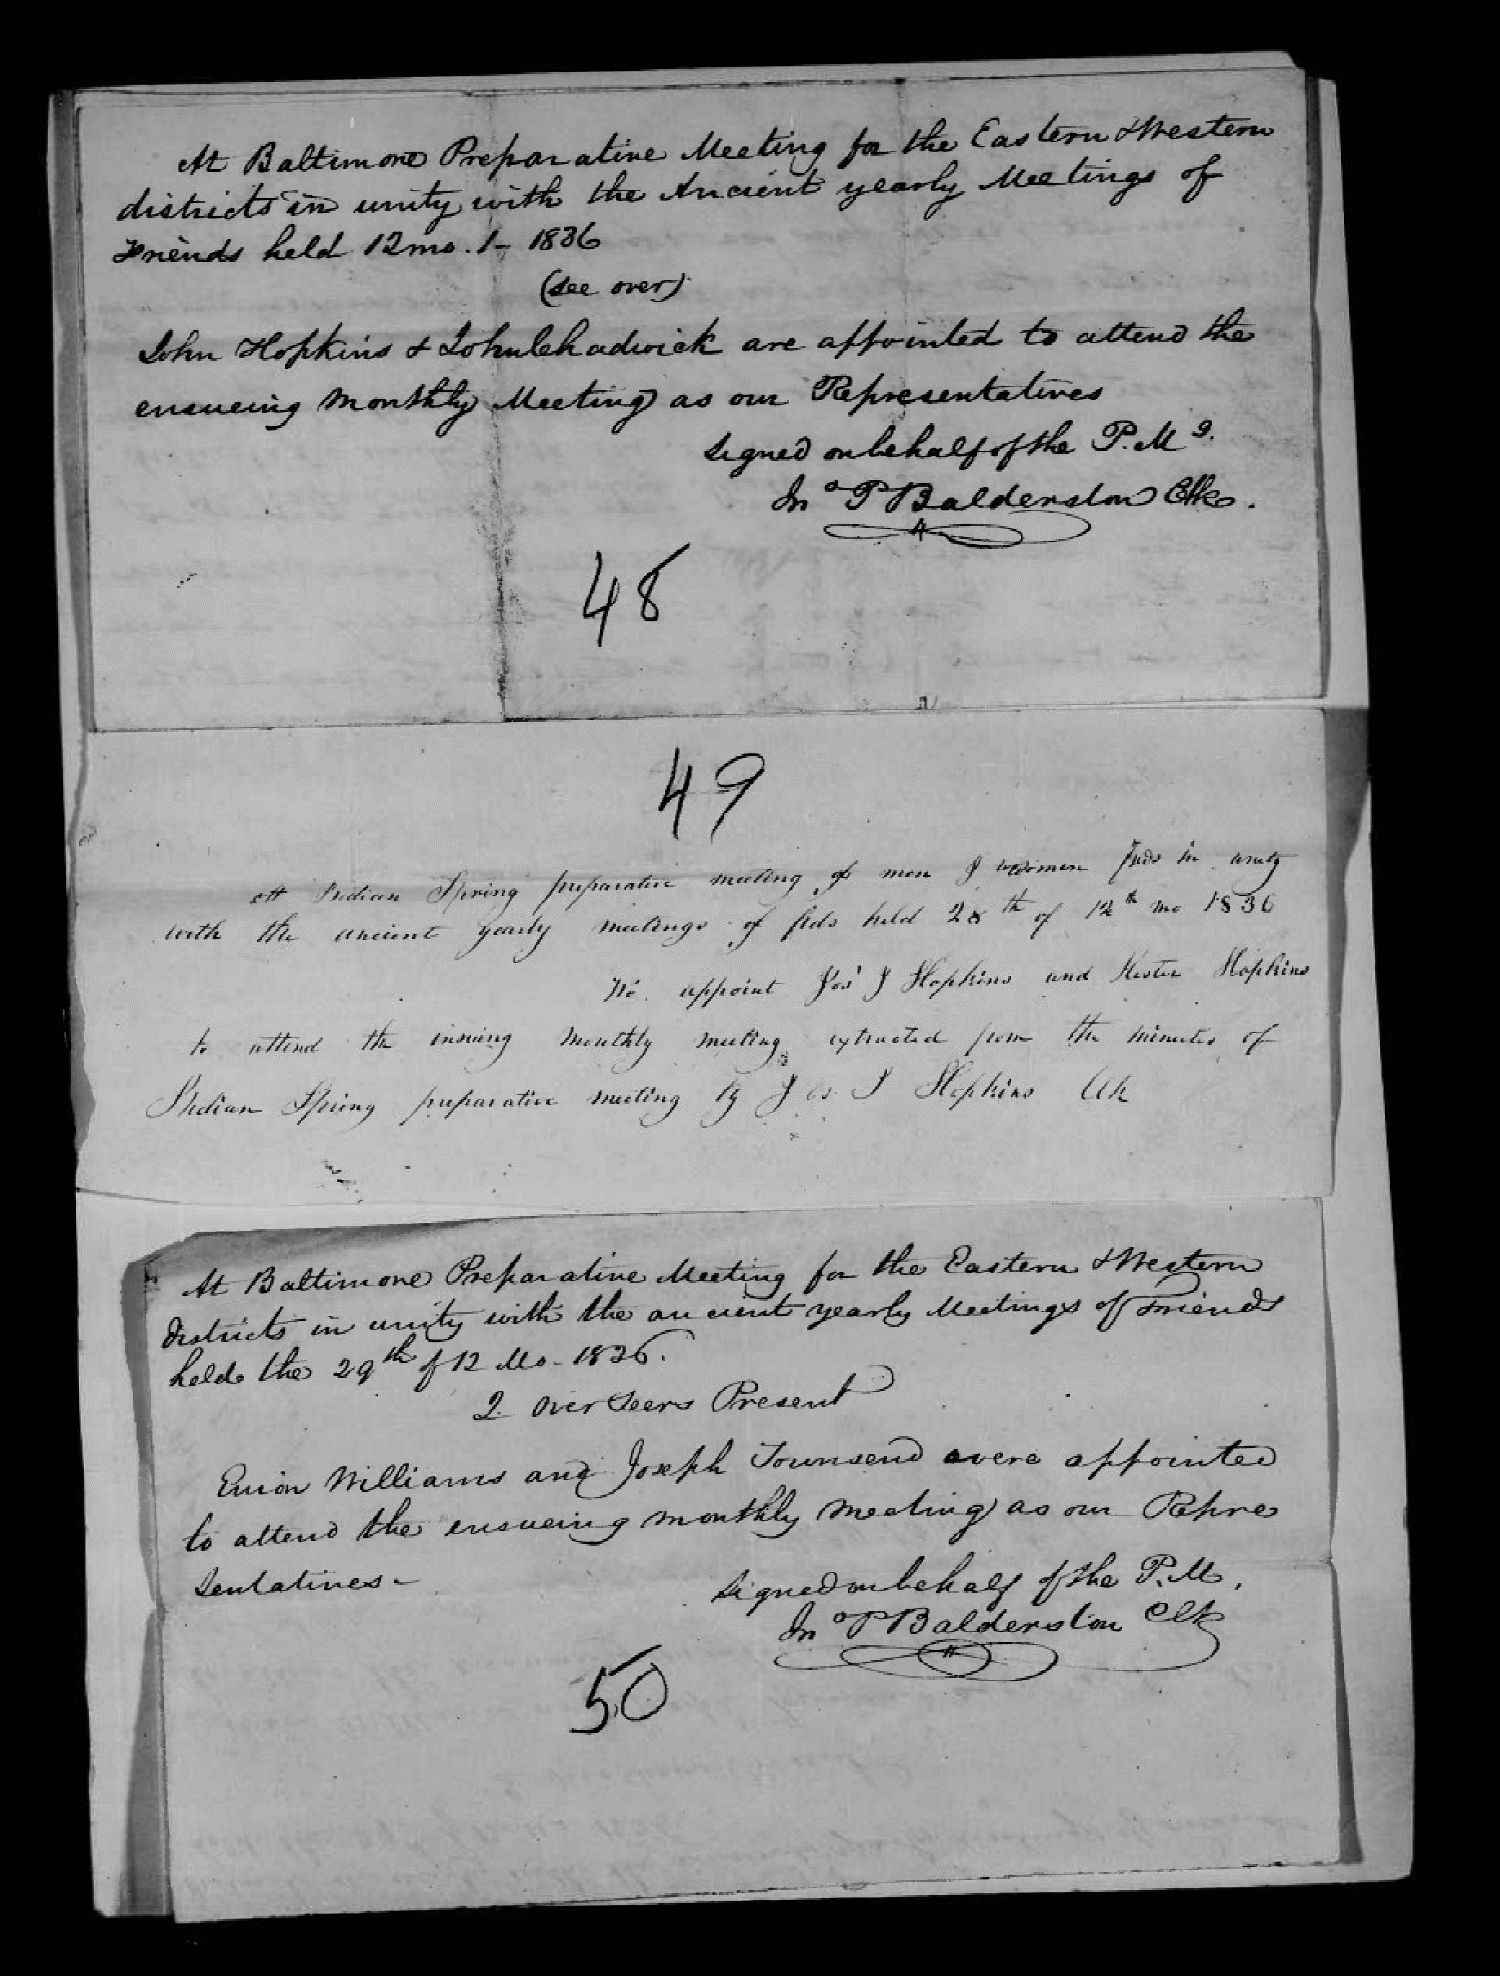 At Baltimore Preparative Meeting for the Eastern & Western
districts in unity with the Ancient yearly Meetings of
Friends held 12 mo. 1 - 1836
(see over)
John Hopkins & John Chadwick are appointed to attend the
ensueing Monthly Meeting as our Representatives
signed on behalf of the P. Mg.
Jno P Balderston Clk.
48
49
At Indian Spring preparative meeting of men & women frds in unity
with the ancient yearly meetings of frds held 28th of 12th mo 1836
We appoint Jos J Hopkins and Hopkins
to attend the insuing monthly meeting extracted from the minutes of
Indian Spring preparative meeting by Jos J Hopkins Clk
At Baltimore Preparative Meeting for the Eastern & Western
districts in unity with the ancient yearly Meetings of Friends
held the 29th of 12 Mo - 1836.
2 Overseers Present
Enion Williams and Joseph Townsend were appointed
to attend the ensueing monthly meeting as our Repre
sentatives -
signed on behalf of the P. M.
Jno P Balderston Clk
50